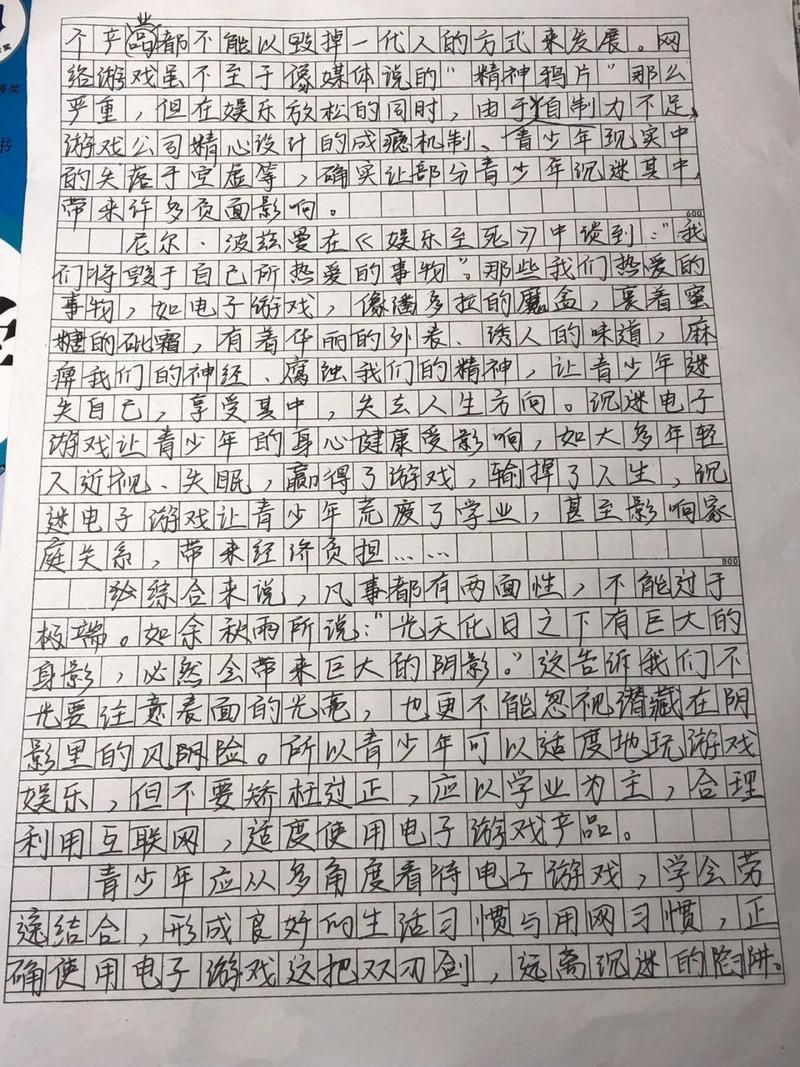 个产业都不能以毁掉一代人的方式来发展。网
络游戏虽不至于像媒体说的“精神鸦片”那么
严重，但在娱乐放松的同时，由于自制力不足、
游戏公司精心设计的成瘾机制、青少年现实中
的失落于空虚等，确实让部分青少年沉迷其中，
带来许多负面影响。
600
尼尔·波兹曼在《娱乐至死》中谈到：“我
们将毁于自己所热爱的事物”，那些我们热爱的
事物，如电子游戏，像潘多拉的魔盒，裹着蜜
糖的砒霜，有着华丽的外表、诱人的味道，麻
痹我们的神经、腐蚀我们的精神，让青少年迷
失自己，享受其中，失去人生方向。沉迷电子
游戏让青少年的身心健康受影响，如大多年轻
人近视、失眠，赢得了游戏，输掉了人生，沉
迷电子游戏让青少年荒废了学业，甚至影响家
庭关系，带来经济负担……
800
综合来说，凡事都有两面性，不能过于
极端。如余秋雨所说：“光天化日之下有巨大的
身影，必然会带来巨大的阴影。”这告诉我们不
光要注意表面的光亮，也更不能忽视潜藏在阴
影里的风险。所以青少年可以适度地玩游戏
娱乐，但不要矫枉过正，应以学业为主，合理
利用互联网，适度使用电子游戏产品。
青少年应从多角度看待电子游戏，学会劳
逸结合，形成良好的生活习惯与用网习惯，正
确使用电子游戏这把双刃剑，远离沉迷的陷阱。